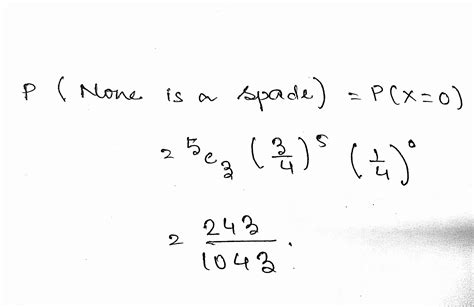 P ( None is a spade) = P(X=0)
= ⁵C₃ (3/4)⁵ (1/4)⁰
= 243/1043.